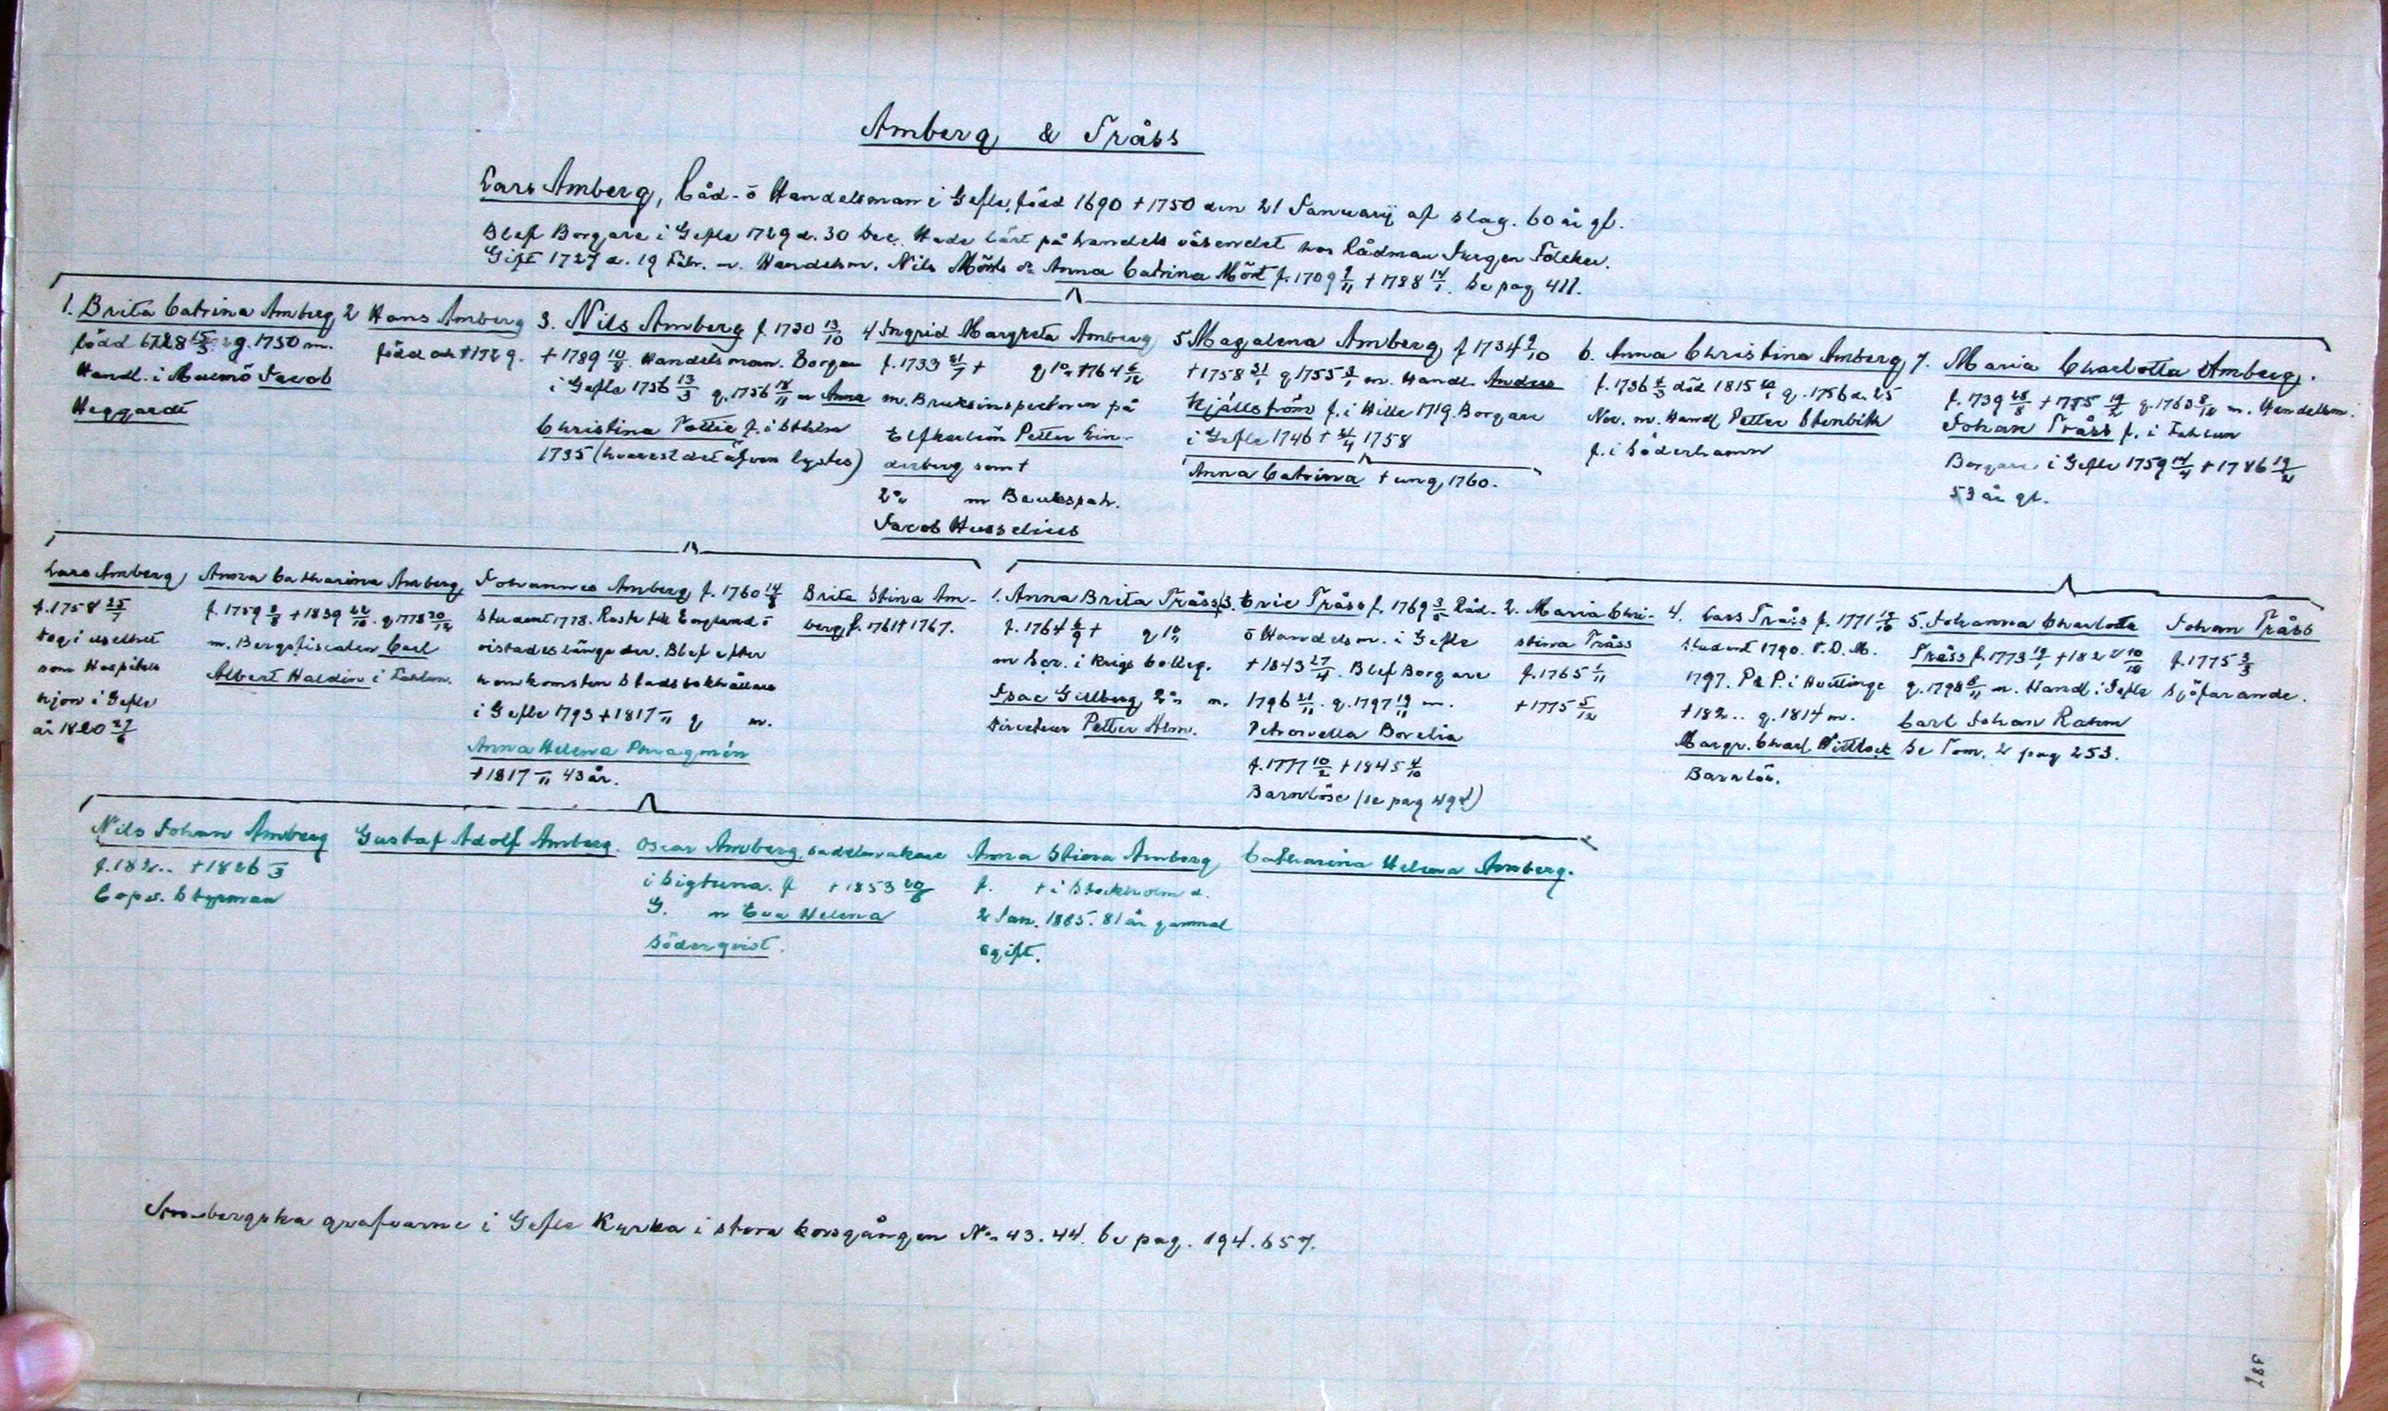 Amberg & Tråss
Lars Amberg, Råd- ō Handelsman i Gefle, född 1690 + 1750 den 21 Januarij af slag. 60 år gl.
Blef Borgare i Gefle 1729 d. 30 Dec. Hade lärt på handels väsendet hos Rådman Jurgen Fölcker.
Gift 1727 d. 19 Febr. m. Handelsm. Nils Mörts dr Anna Catrina Mört f. 1709 9/11 + 1788 14/1. Se pag 411.
1. Brita Catrina Amberg
född 1728 15/3 g. 1750 m.
Handl. i Malmö Jacob
Heggardt
2 Hans Amberg
född och + 1729.
3. Nils Amberg f. 1730 13/10
+ 1789 10/8. Handelsman. Borgare
i Gefle 1756 13/3 g. 1756 18/11 m Anna
Christina Tottie f. i Sthlm
1735 (hvarest det äfven lystes)
4 Ingrid Margreta Amberg
f. 1733 21/7 + g 1o 1764 6/12
m. Bruksinspectoren på
Elfkarleön Petter Lin-
derberg samt
2o m Brukspatr.
Jacob Husselius
5 Magdalena Amberg f 1734 9/10
+ 1758 31/1 g 1755 3/1 m. Handl. Anders
Kjällström f. i Hille 1719. Borgare
i Gefle 1746 + 21/4 1758
Anna Catrina + ung 1760.
6. Anna Christina Amberg
f. 1736 4/3 död 1815 g. 1756 d. 25
Nov. m. Handl Petter Stenbäk
f. i Söderhamn
7. Maria Charlotta Amberg.
f. 1739 28/8 + 1785 19/2 g. 1763 8/12 m. Handelsm.
Johan Tråss f. i Fahlun
Borgare i Gefle 1759 14/4 + 1786 19/2
53 år gl.
Lars Amberg
f. 1758 25/7
tog i uselhet
som Hospitals
hjon i Gefle
år 1820 27/6
Anna Catharina Amberg
f. 1759 8/8 + 1839 22/10. g 1778 30/12
m. Bergsfiscalen Carl
Albert Haldin i Fahlun.
Johannes Amberg f. 1760 14/8
Student 1778. Reste till England ō
vistades länge der. Blef efter
hemkomsten Stadsbokhållare
i Gefle 1793 + 1817 /11 g m.
Anna Helena Phragmén
+ 1817 /11 43 år.
Brita Stina Am-
berg f. 1761 + 1767.
1. Anna Brita Tråss
f. 1764 6/9 + g 1o
m Scr. i Krigs Colleg.
Isac Gillberg 2o m.
Directeur Petter Alm.
3. Eric Tråss f. 1769 3/5 Råd-
ō Handelsm. i Gefle
+ 1843 27/4. Blef Borgare
1796 21/11. g. 1797 19/11 m.
Petronella Borelia
f. 1777 10/2 + 1845 4/10
Barnlöse (se pag 492)
2. Maria Chri-
stina Tråss
f. 1765 1/11
+ 1775 5/12
4. Lars Tråss f. 1771 19/10
Student 1790. V.D.M.
1797. P& P. i Huttinge
+ 182.. g. 1814 m.
Margr. Charl. Wittlock
Barnlös.
5. Johanna Charlotta
Tråss f. 1773 19/1 + 1828 10/10
g. 1798 8/11 m. Handl. i Gefle
Carl Johan Rahm
Se Tom. 2 pag 253.
Johan Tråss
f. 1775 3/3
Sjöfarande.
Nils Johan Amberg
f. 182.. + 1826 /3
Copv. Styrman
Gustaf Adolf Amberg.
Oscar Amberg, Sadelmakare
i Sigtuna. f + 1853 20/8
G. m Eva Helena
Söderqvist.
Anna Stina Amberg
f. + i Stockholm d.
2 Jan. 1885. 81 år gammal
ogift.
Catharina Helena Amberg.
Ambergska grafvarne i Gefle Kyrka i stora korsgången No 43. 44. Se pag. 194. 657.
387